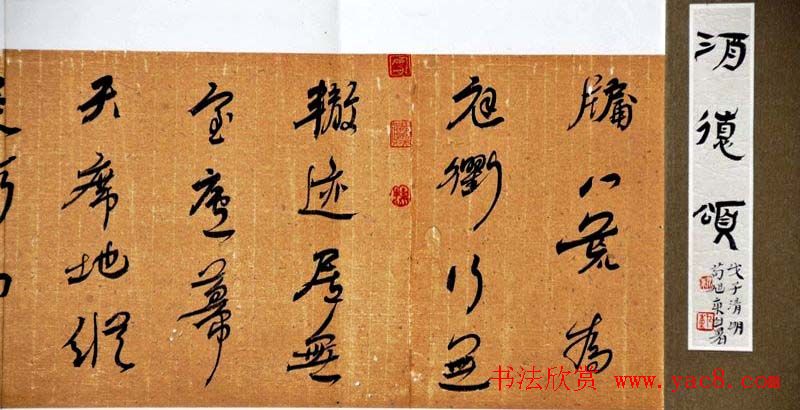 酒德頌
戊子清明
牖八荒為
庭衢行無
轍迹居無
室廬幕
天席地縱
书法欣赏 www.yac8.com